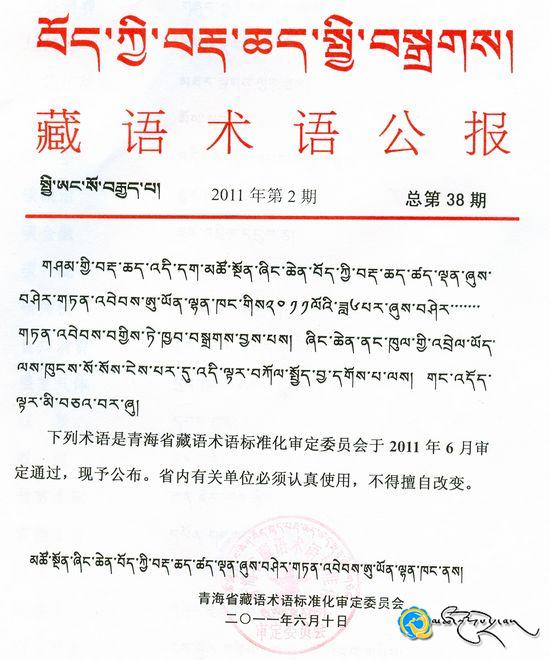 བོད་ཀྱི་བརྡ་ཆད་སྤྱི་བསྒྲགས།
藏语术语公报
སྤྱི་ཨང་སོ་བརྒྱད་པ།
2011年第2期
总第38期
གཤམ་གྱི་བརྡ་ཆད་འདི་དག་མཚོ་སྔོན་ཞིང་ཆེན་བོད་ཀྱི་བརྡ་ཆད་ཚད་ལྡན་ཞུས་
བཤེར་གཏན་འབེབས་ཨུ་ཡོན་ལྷན་ཁང་གིས༢༠༡༡ལོའི་ཟླ༦པར་ཞུས་བཤེར……
གཏན་འབེབས་བགྱིས་ཏེ་ཁྱབ་བསྒྲགས་བྱས་པས། ཞིང་ཆེན་ནང་ཁུལ་གྱི་འབྲེལ་ཡོད་
ལས་ཁུངས་སོ་སོས་ངེས་པར་དུ་འདི་ལྟར་བཀོལ་སྤྱོད་བྱ་དགོས་པ་ལས། གང་འདོད་
ལྟར་མི་བཅའ་བར་ཞུ།
下列术语是青海省藏语术语标准化审定委员会于2011年6月审
定通过，现予公布。省内有关单位必须认真使用，不得擅自改变。
མཚོ་སྔོན་ཞིང་ཆེན་བོད་ཀྱི་བརྡ་ཆད་ཚད་ལྡན་ཞུས་བཤེར་གཏན་འབེབས་ཨུ་ཡོན་ལྷན་ཁང་ནས།
青海省藏语术语标准化审定委员会
二〇一一年六月十日
审定委员会